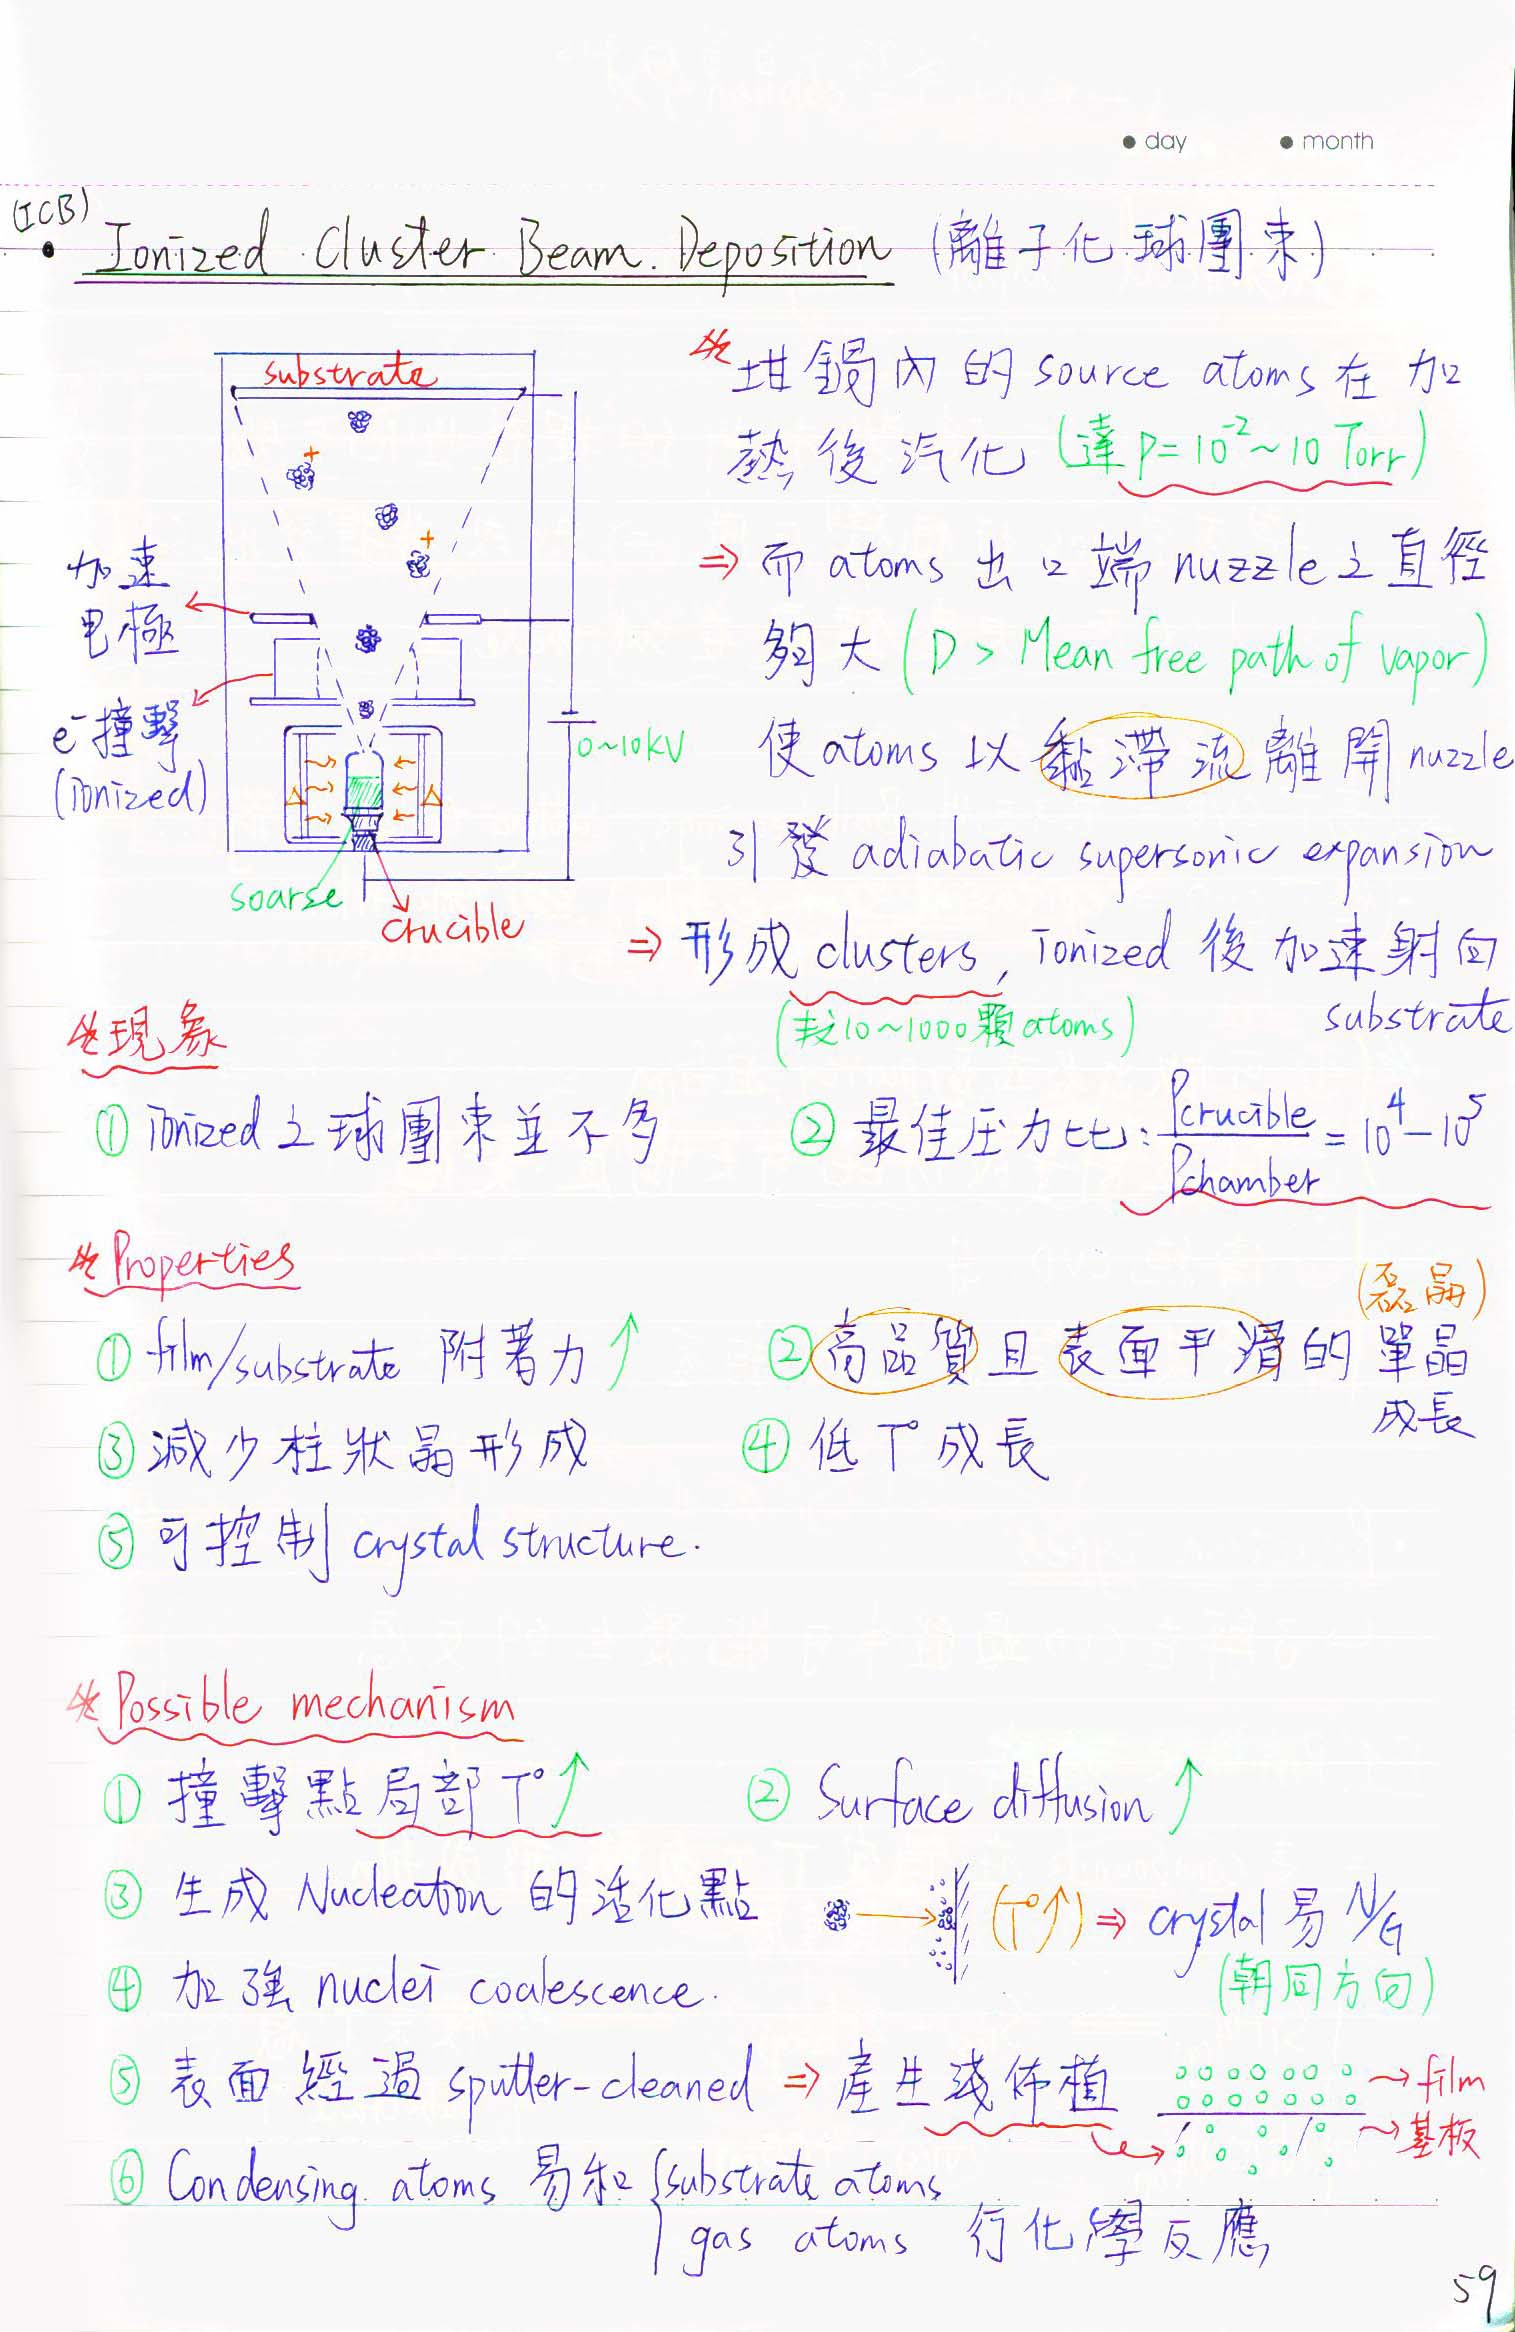 • day • month
(ICB)
• Ionized Cluster Beam Deposition (離子化球團束)
substrate
+
+
加速
电極
e⁻撞擊
(ionized)
0~10kV
soarse
crucible
坩鍋內的 source atoms 在加
熱後汽化 (達 P=10⁻²~10 Torr)
⇒ 而 atoms 出口端 nuzzle 之直徑
夠大 (D > Mean free path of vapor)
使 atoms 以黏滯流離開 nuzzle
引發 adiabatic supersonic expansion
⇒ 形成 clusters, ionized 後加速射向
substrate
(10~1000顆 atoms)
現象
① ionized 之球團束並不多
② 最佳压力比: Pcrucible/Pchamber = 10⁴-10⁵
Properties
① film/substrate 附著力↑
(磊晶)
② 高品質且表面平滑的單晶
成長
③ 減少柱狀晶形成
④ 低T°成長
⑤ 可控制 crystal structure.
Possible mechanism
① 撞擊點局部T°↑
② Surface diffusion↑
③ 生成 Nucleation 的活化點
(T°↑) ⇒ crystal 易 N/G
(朝同方向)
④ 加強 nuclei coalescence.
⑤ 表面經過 sputter-cleaned ⇒ 產生淺佈植
→ film
→ 基板
⑥ Condensing atoms 易和 {substrate atoms
gas atoms 行化學反應
59